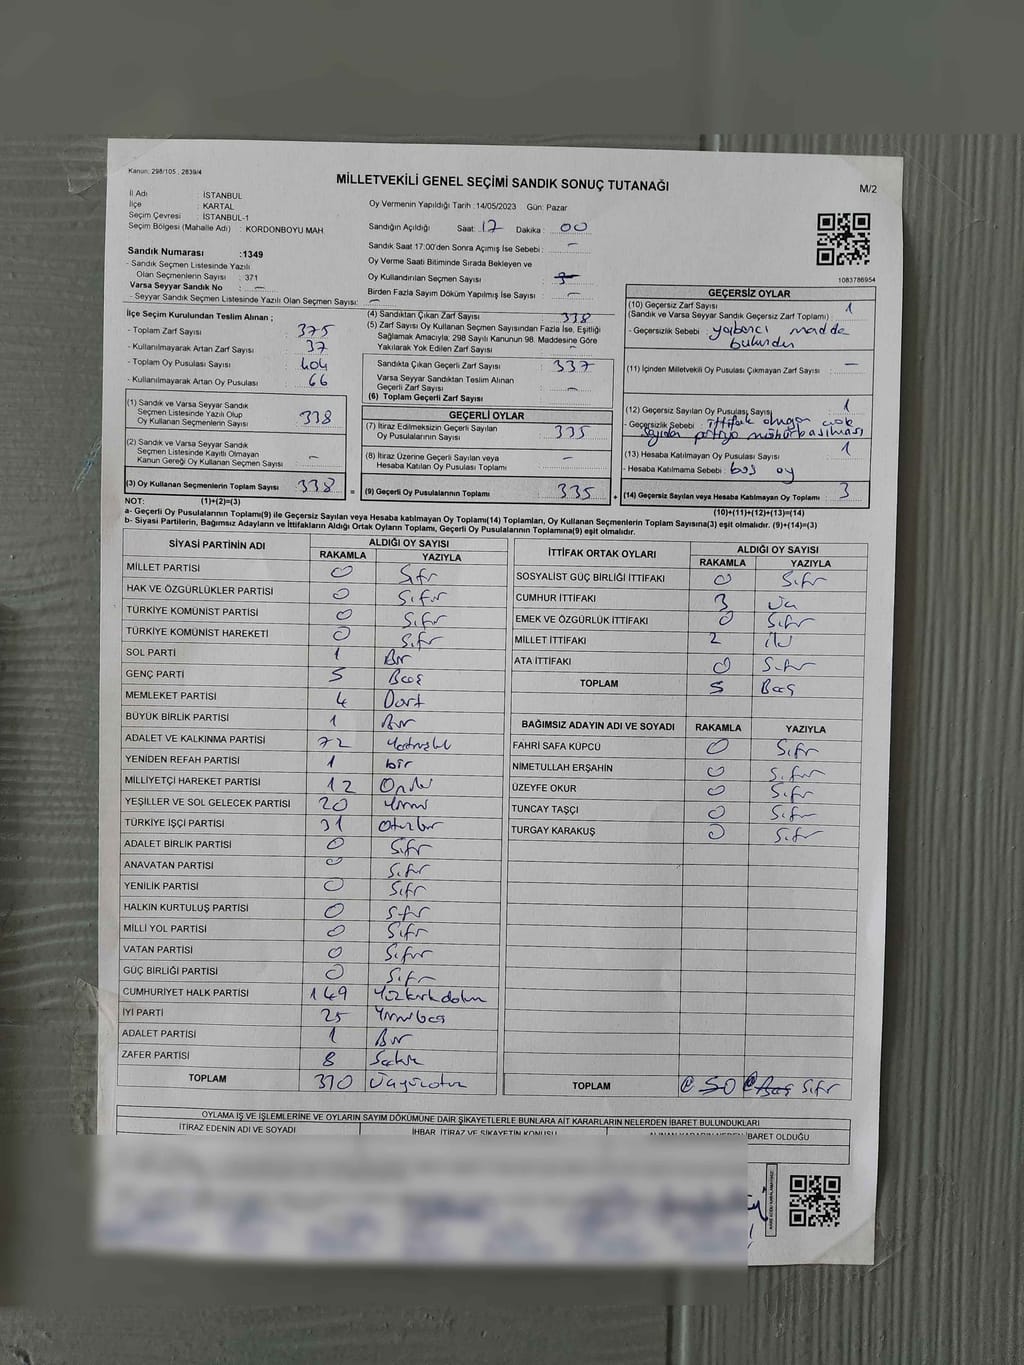 Kanun: 298/105 , 2839/4
MİLLETVEKİLİ GENEL SEÇİMİ SANDIK SONUÇ TUTANAĞI
M/2
İl Adı : İSTANBUL
İlçe : KARTAL
Seçim Çevresi : İSTANBUL-1
Seçim Bölgesi (Mahalle Adı) : KORDONBOYU MAH.
Oy Vermenin Yapıldığı Tarih : 14/05/2023 Gün: Pazar
Sandığın Açıldığı Saat: 17 Dakika: 00
Sandık Saat 17:00'den Sonra Açımış İse Sebebi : -
Oy Verme Saati Bitiminde Sırada Bekleyen ve
Oy Kullandırılan Seçmen Sayısı
Birden Fazla Sayım Döküm Yapılmış İse Sayısı : -
1083786954
Sandık Numarası :1349
- Sandık Seçmen Listesinde Yazılı
Olan Seçmenlerin Sayısı : 371
Varsa Seyyar Sandık No : -
- Seyyar Sandık Seçmen Listesinde Yazılı Olan Seçmen Sayısı: -
İlçe Seçim Kurulundan Teslim Alınan ;
- Toplam Zarf Sayısı : 375
- Kullanılmayarak Artan Zarf Sayısı : 37
- Toplam Oy Pusulası Sayısı : 404
- Kullanılmayarak Artan Oy Pusulası : 66
(1) Sandık ve Varsa Seyyar Sandık
Seçmen Listesinde Yazılı Olup
Oy Kullanan Seçmenlerin Sayısı 338
(2) Sandık ve Varsa Seyyar Sandık
Seçmen Listesinde Kayıtlı Olmayan
Kanun Gereği Oy Kullanan Seçmen Sayısı -
(3) Oy Kullanan Seçmenlerin Toplam Sayısı 338 =
(4) Sandıktan Çıkan Zarf Sayısı : 338
(5) Zarf Sayısı Oy Kullanan Seçmen Sayısından Fazla İse, Eşitliği
Sağlamak Amacıyla; 298 Sayılı Kanunun 98. Maddesine Göre
Yakılarak Yok Edilen Zarf Sayısı : -
Sandıkta Çıkan Geçerli Zarf Sayısı : 337
Varsa Seyyar Sandıktan Teslim Alınan
Geçerli Zarf Sayısı : -
(6) Toplam Geçerli Zarf Sayısı :
GEÇERLİ OYLAR
(7) İtiraz Edilmeksizin Geçerli Sayılan
Oy Pusulalarının Sayısı : 335
(8) İtiraz Üzerine Geçerli Sayılan veya
Hesaba Katılan Oy Pusulası Toplamı : -
(9) Geçerli Oy Pusulalarının Toplamı 335 +
GEÇERSİZ OYLAR
(10) Geçersiz Zarf Sayısı 1
(Sandık ve Varsa Seyyar Sandık Geçersiz Zarf Toplamı) :
- Geçersizlik Sebebi : yabancı madde
bulundu
(11) İçinden Milletvekili Oy Pusulası Çıkmayan Zarf Sayısı : -
(12) Geçersiz Sayılan Oy Pusulası Sayısı : 1
- Geçersizlik Sebebi : ittifak olmayan çok
sayıda partiye mühür basılması
(13) Hesaba Katılmayan Oy Pusulası Sayısı : 1
- Hesaba Katılmama Sebebi : boş oy
(14) Geçersiz Sayılan veya Hesaba Katılmayan Oy Toplamı : 3
NOT: (1)+(2)=(3)
(10)+(11)+(12)+(13)=(14)
a- Geçerli Oy Pusulasının Toplamı(9) ile Geçersiz Sayılan veya Hesaba katılmayan Oy Toplamı(14) Toplamları, Oy Kullanan Seçmenlerin Toplam Sayısına(3) eşit olmalıdır. (9)+(14)=(3)
b- Siyasi Partilerin, Bağımsız Adayların ve İttifakların Aldığı Ortak Oyların Toplamı, Geçerli Oy Pusulalarının Toplamına(9) eşit olmalıdır.
SİYASİ PARTİNİN ADI ALDIĞI OY SAYISI
RAKAMLA YAZIYLA
MİLLET PARTİSİ 0 Sıfır
HAK VE ÖZGÜRLÜKLER PARTİSİ 0 Sıfır
TÜRKİYE KOMÜNİST PARTİSİ 0 Sıfır
TÜRKİYE KOMÜNİST HAREKETİ 0 Sıfır
SOL PARTİ 1 Bir
GENÇ PARTİ 5 Beş
MEMLEKET PARTİSİ 4 Dört
BÜYÜK BİRLİK PARTİSİ 1 Bir
ADALET VE KALKINMA PARTİSİ 72 Yetmişiki
YENİDEN REFAH PARTİSİ 1 bir
MİLLİYETÇİ HAREKET PARTİSİ 12 Oniki
YEŞİLLER VE SOL GELECEK PARTİSİ 20 Yirmi
TÜRKİYE İŞÇİ PARTİSİ 31 Otuzbir
ADALET BİRLİK PARTİSİ 0 Sıfır
ANAVATAN PARTİSİ 0 Sıfır
YENİLİK PARTİSİ 0 Sıfır
HALKIN KURTULUŞ PARTİSİ 0 Sıfır
MİLLİ YOL PARTİSİ 0 Sıfır
VATAN PARTİSİ 0 Sıfır
GÜÇ BİRLİĞİ PARTİSİ 0 Sıfır
CUMHURİYET HALK PARTİSİ 149 Yüzkırkdokuz
İYİ PARTİ 25 Yirmibeş
ADALET PARTİSİ 1 Bir
ZAFER PARTİSİ 8 Sekiz
TOPLAM 330 Üçyüzotuz
İTTİFAK ORTAK OYLARI ALDIĞI OY SAYISI
RAKAMLA YAZIYLA
SOSYALİST GÜÇ BİRLİĞİ İTTİFAKI 0 Sıfır
CUMHUR İTTİFAKI 3 üç
EMEK VE ÖZGÜRLÜK İTTİFAKI 0 Sıfır
MİLLET İTTİFAKI 2 iki
ATA İTTİFAKI 0 Sıfır
TOPLAM 5 Beş
BAĞIMSIZ ADAYIN ADI VE SOYADI RAKAMLA YAZIYLA
FAHRİ SAFA KÜPCÜ 0 Sıfır
NİMETULLAH ERŞAHİN 0 Sıfır
ÜZEYFE OKUR 0 Sıfır
TUNCAY TAŞÇI 0 Sıfır
TURGAY KARAKUŞ 0 Sıfır
TOPLAM 0 Sıfır
OYLAMA İŞ VE İŞLEMLERİNE VE OYLARIN SAYIM DÖKÜMÜNE DAİR ŞİKAYETLERLE BUNLARA AİT KARARLARIN NELERDEN İBARET BULUNDUKLARI
İTİRAZ EDENİN ADI VE SOYADI İHBAR, İTİRAZ VE ŞİKAYETİN KONUSU ALINAN KARARIN NEDEN İBARET OLDUĞU